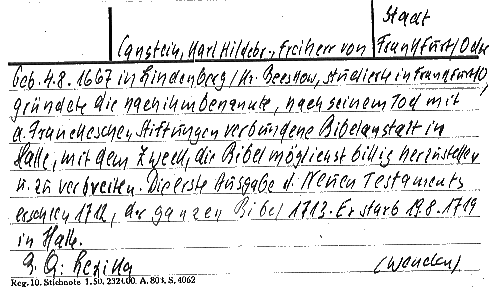 Stadt
Canstein, Karl Hildebr., Freiherr von Frankfurt/Oder
Geb. 4.8.1667 in Lindenberg/Kr. Beeskow, studierte in Frankfurt/O,
gründete die nach ihm benannte, nach seinem Tod mit
d. Franckeschen Stiftungen verbundene Bibelanstalt in
Halle, mit dem Zweck, die Bibel möglichst billig herzustellen
u. zu verbreiten. Die erste Ausgabe d. Neuen Testaments
erschien 1712, der ganzen Bibel 1713. Er starb 19.8.1719
in Halle.
(Wenden)
Reg. 10. Stichnote 1.50. 2324.00. A. 803. S. 4062